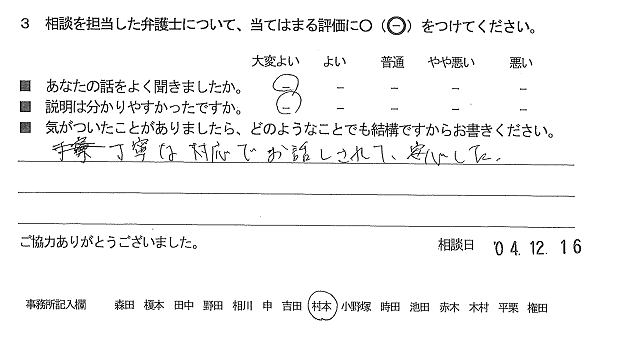 3 相談を担当した弁護士について、当てはまる評価に○（⊖）をつけてください。
大変よい よい 普通 やや悪い 悪い
■ あなたの話をよく聞きましたか。 － － － － －
■ 説明は分かりやすかったですか。 － － － － －
■ 気がついたことがありましたら、どのようなことでも結構ですからお書きください。
丁寧な対応でお話しされて、安心した。
ご協力ありがとうございました。 相談日 '04.12.16
事務所記入欄 森田 榎本 田中 野田 相川 申 吉田 村本 小野塚 時田 池田 赤木 木村 平栗 権田